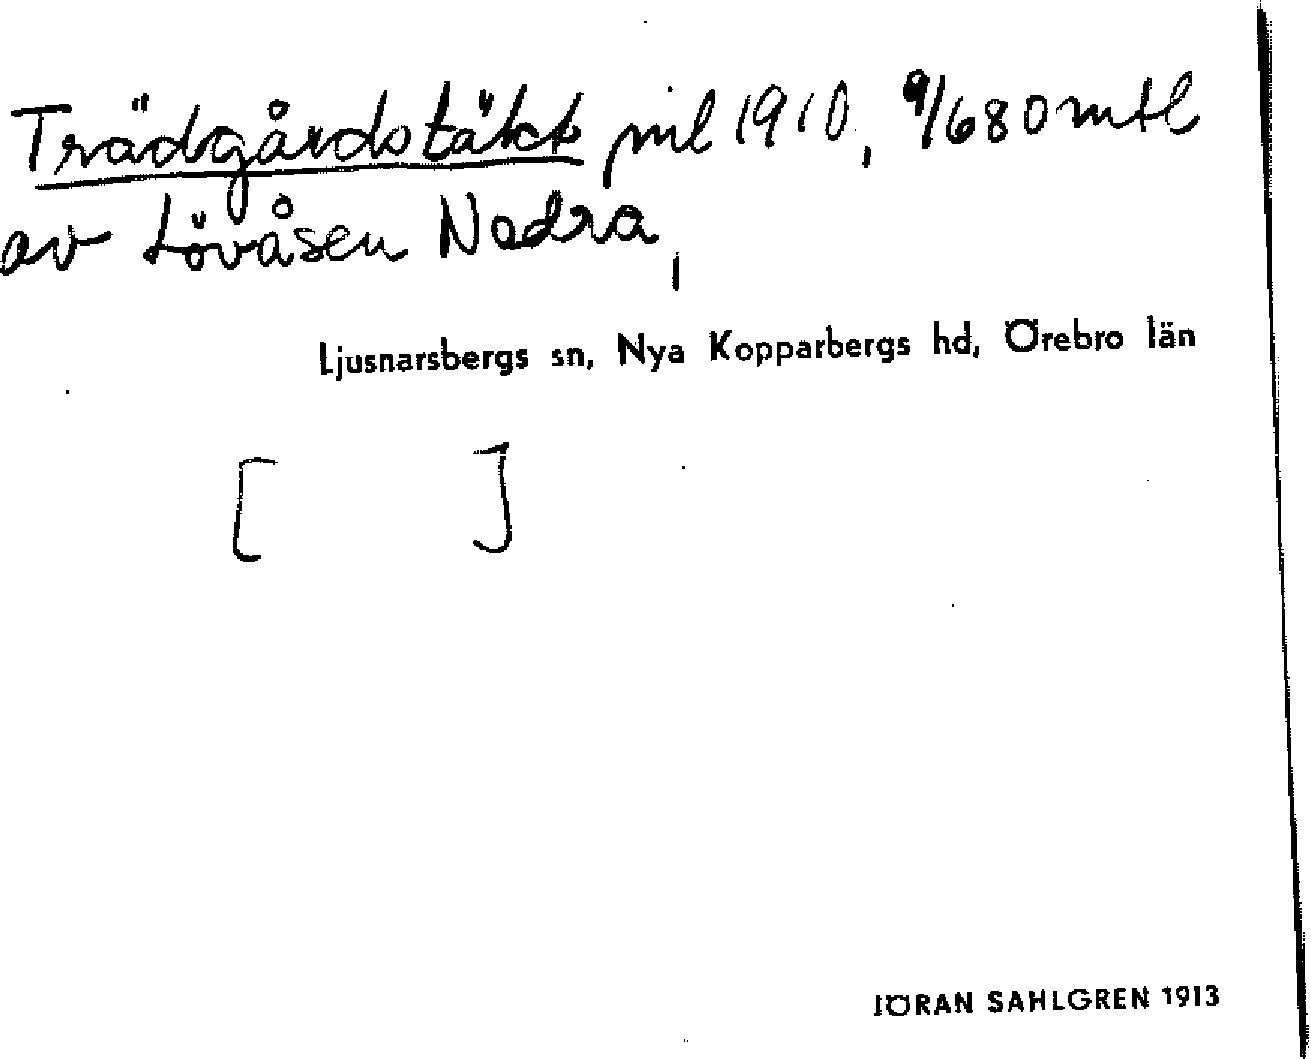 Trädgårdstäkt jnl 1910, 9/680 mtl
av Lövåsen Nedra,
Ljusnarsbergs sn, Nya Kopparbergs hd, Örebro län
[ ]
JÖRAN SAHLGREN 1913